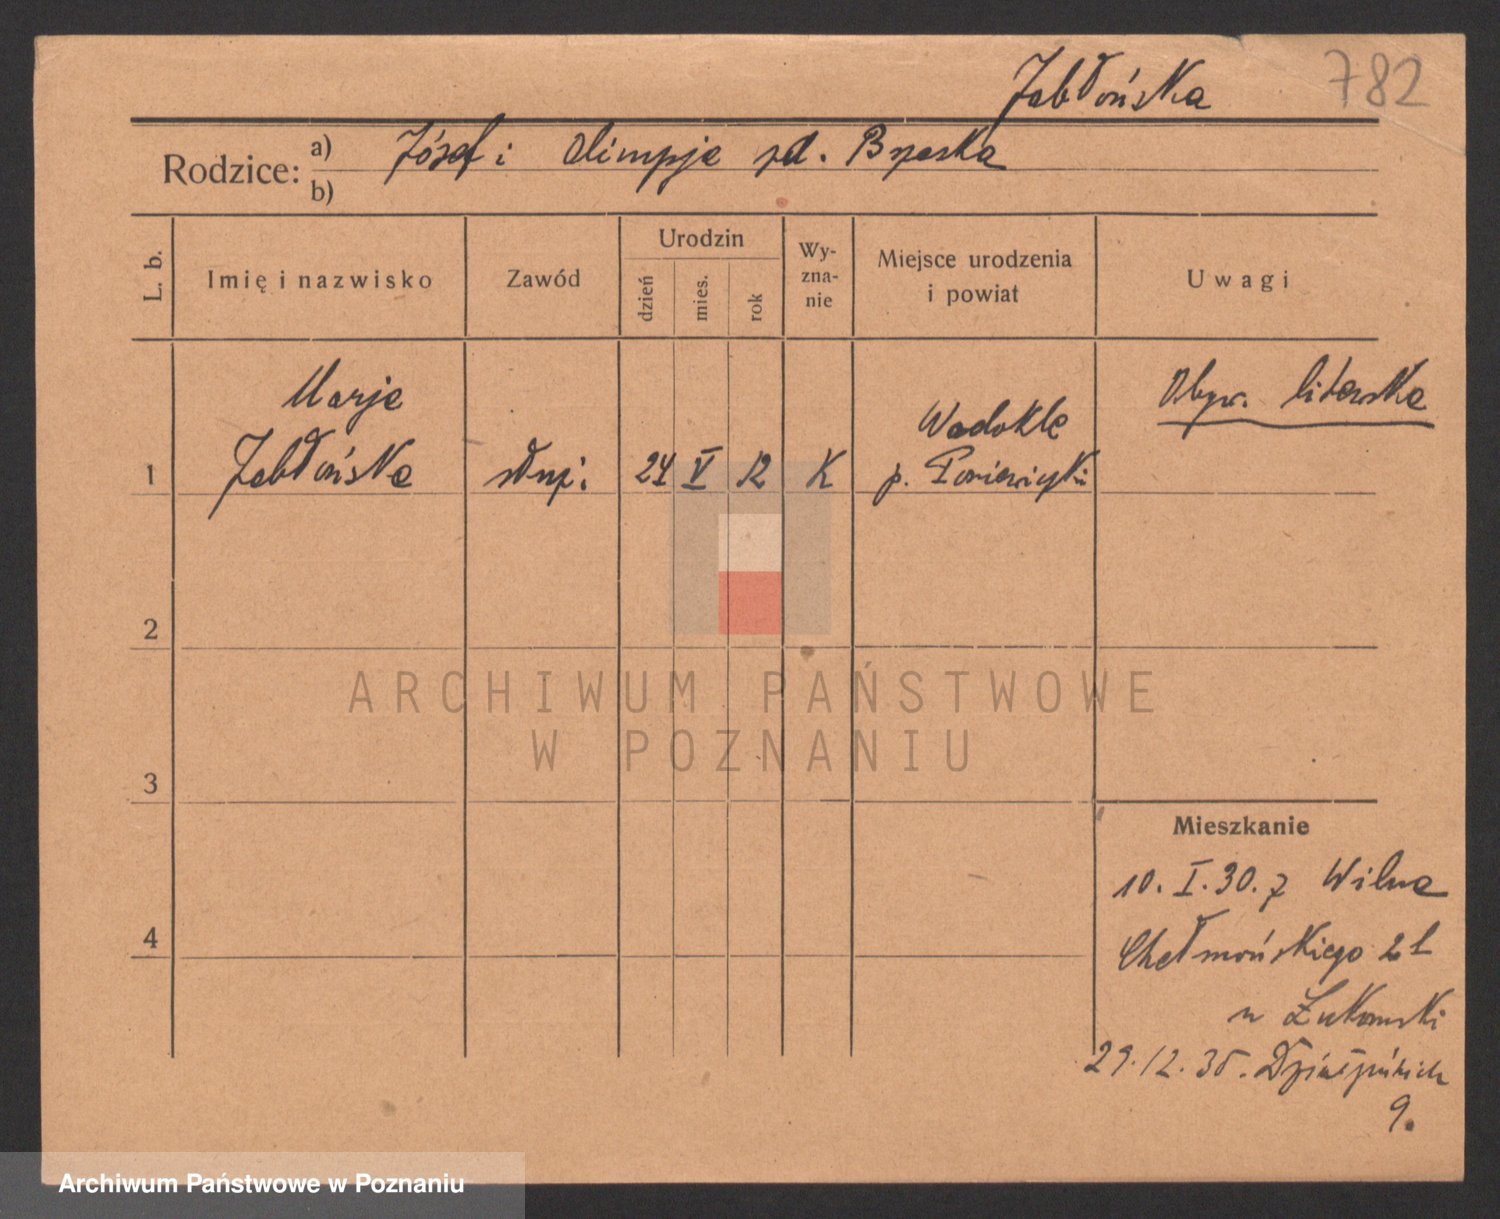 Jabłońska 782
Rodzice: a) Józef i Olimpja zd. Brzeska
b)
L. b. Imię i nazwisko Zawód Urodzin dzień mies. rok Wy-zna-nie Miejsce urodzenia i powiat Uwagi
Marja Obyw. litewska
Wadokle
1 Jabłońska służ. 24 V 12 K p. Poniewieski
2
ARCHIWUM PAŃSTWOWE
W POZNANIU
3
Mieszkanie
10. I. 30. z Wilna
4 Chełmońskiego 21
u Żukowski
29.12.35.
9.
Archiwum Państwowe w Poznaniu